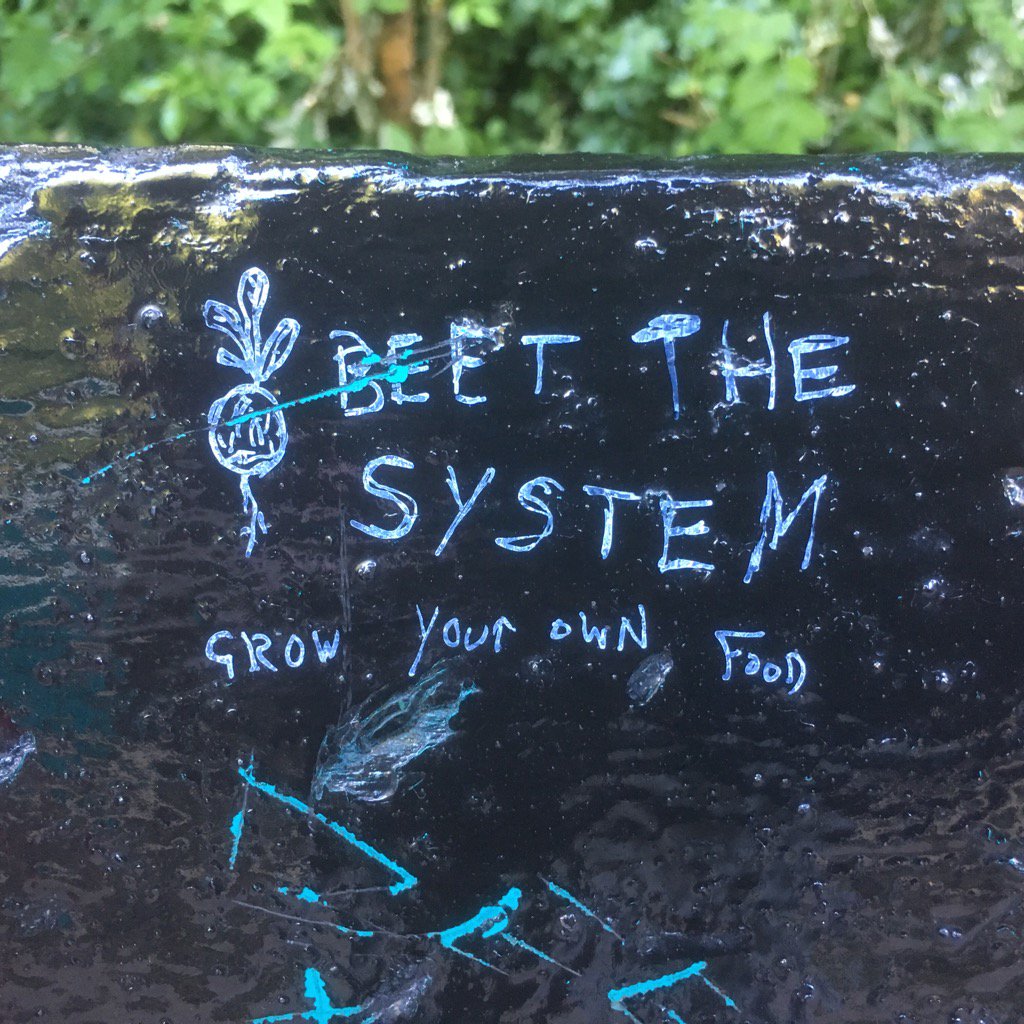 BEET THE
SYSTEM
GROW YOUR OWN FOOD